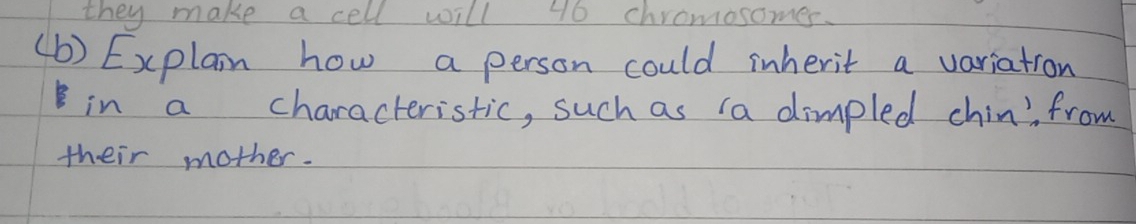 they make a cell will 46 chromosomes.
(b) Explain how a person could inherit a variation
in a characteristic, such as 'a dimpled chin', from
their mother.